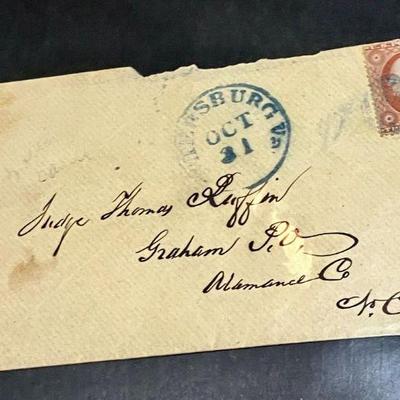 PETERSBURG Va
OCT
31
Judge Thomas Ruffin
Graham P.O.
Alamance Co
No. C